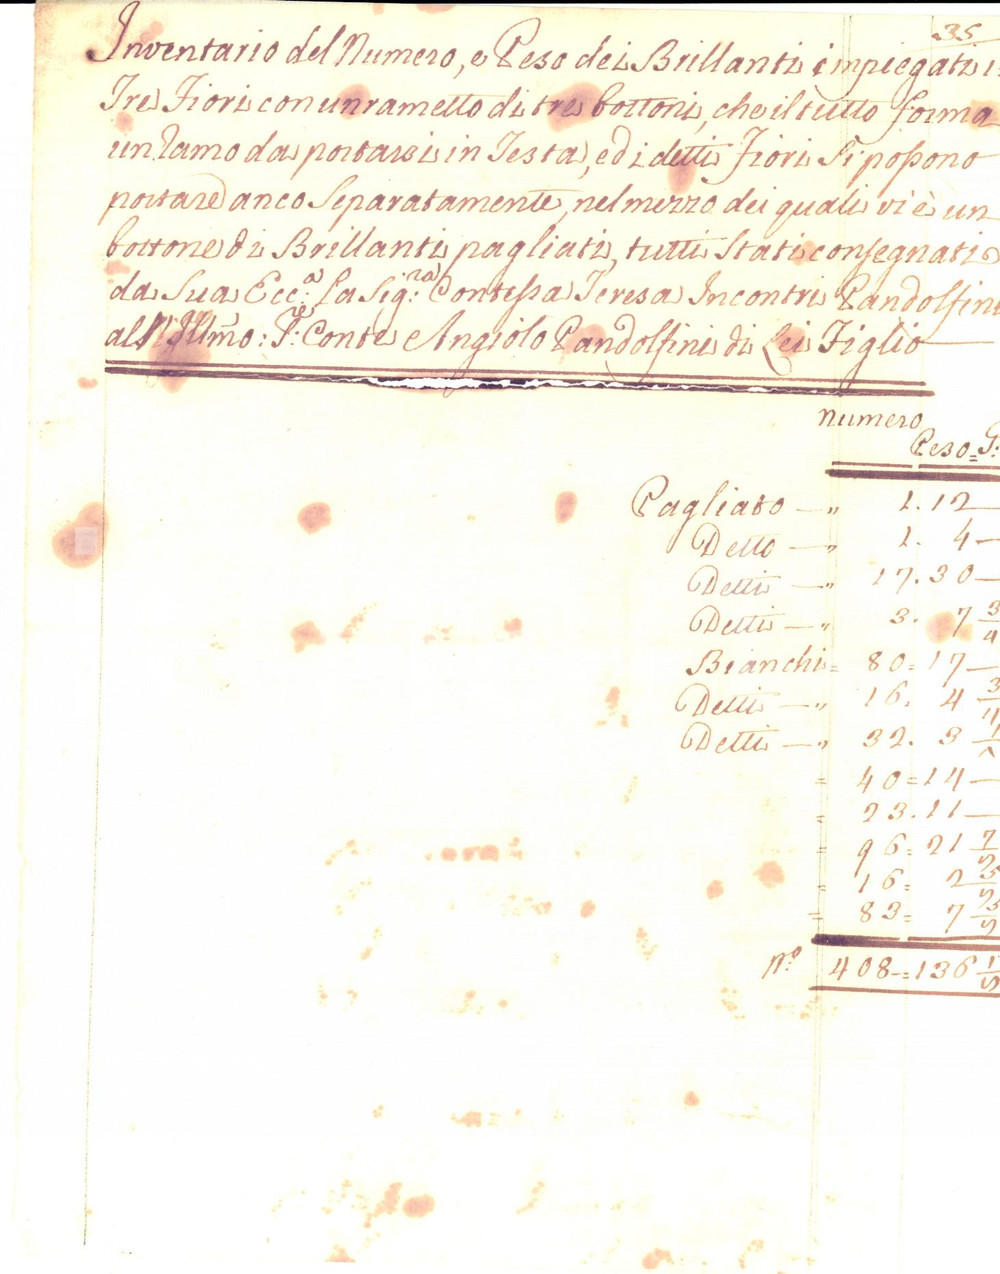 35
Inventario del Numero, e Peso dei Brillanti impiegati i
Tre Fiori con un rametto di tre bottoni, che il tutto forma
un ramo da portarsi in Testa, ed i detti Fiori Si possono
portare anco Separatamente, nel mezzo dei quali vi è un
bottone di Brillanti pagliati, tutti Stati consegnati
da Sua Ecc.a la Sig.ra Contessa Teresa Incontri Pandolfini
all' Illmo: S.re Conte Angiolo Pandolfini di Lei Figlio
Numero
Peso = G:
Pagliato — „ 1. 12 —
Detto — „ 1. 4 —
Detti — „ 17. 30 —
Detti — „ 3. 7 3/4
Bianchi = 80 = 17 —
Detti — „ 16. 4 3/4
Detti — „ 32. 3 1/
= 40 = 14 —
= 23. 11 —
= 96 = 21
= 16 = 2
= 83 = 7
N.o 408 = 136